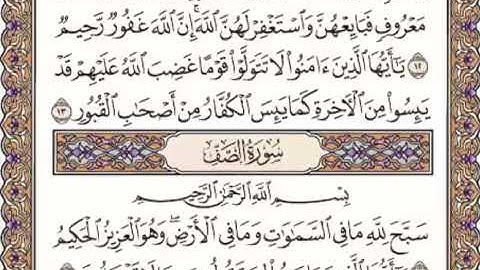 مَعْرُوفٍ فَبَايِعْهُنَّ وَاسْتَغْفِرْ لَهُنَّ اللَّهَ ۖ إِنَّ اللَّهَ غَفُورٌ رَّحِيمٌ
١٢ يَٰٓأَيُّهَا الَّذِينَ ءَامَنُوا لَا تَتَوَلَّوْا قَوْمًا غَضِبَ اللَّهُ عَلَيْهِمْ قَدْ
يَئِسُوا مِنَ الْآخِرَةِ كَمَا يَئِسَ الْكُفَّارُ مِنْ أَصْحَٰبِ الْقُبُورِ ١٣
سُورَةُ الصَّفِّ
بِسْمِ اللَّهِ الرَّحْمَٰنِ الرَّحِيمِ
سَبَّحَ لِلَّهِ مَا فِي السَّمَٰوَٰتِ وَمَا فِي الْأَرْضِ ۖ وَهُوَ الْعَزِيزُ الْحَكِيمُ